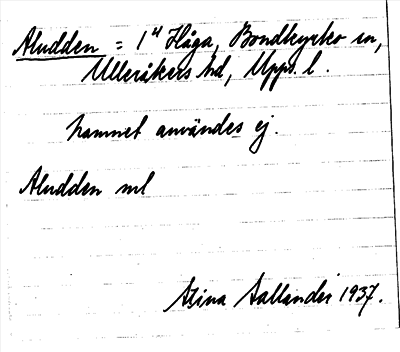 Aludden = 1 u Håga, Bondkyrko sn,
Ulleråkers hd, Upps. l.
namnet användes ej.
Aludden ml
Stina Sallander 1937.